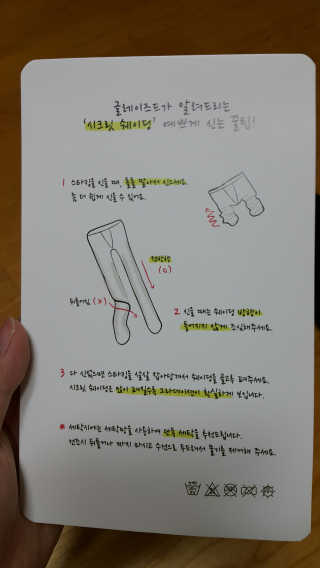 글레이즈드가 알려드리는
'시크릿 쉐이딩' 예쁘게 신는 꿀팁!
1 스타킹을 신을 때, 돌돌 말아서 신으세요.
좀 더 쉽게 신을 수 있어요.
정방향
(O)
뒤틀어짐 (X)
2 신을 때는 쉐이딩 방향이
틀어지지 않게 조심해주세요.
3 다 신었으면 스타킹을 살살 잡아당겨서 쉐이딩을 골고루 펴주세요.
시크릿 쉐이딩은 많이 펴질수록 그라데이션이 확실하게 보입니다.
* 세탁시에는 세탁망을 사용하여 단독 세탁을 추천드립니다.
건조시 뒤틀거나 짜지 마시고 수건으로 두드려서 물기를 제거해 주세요.